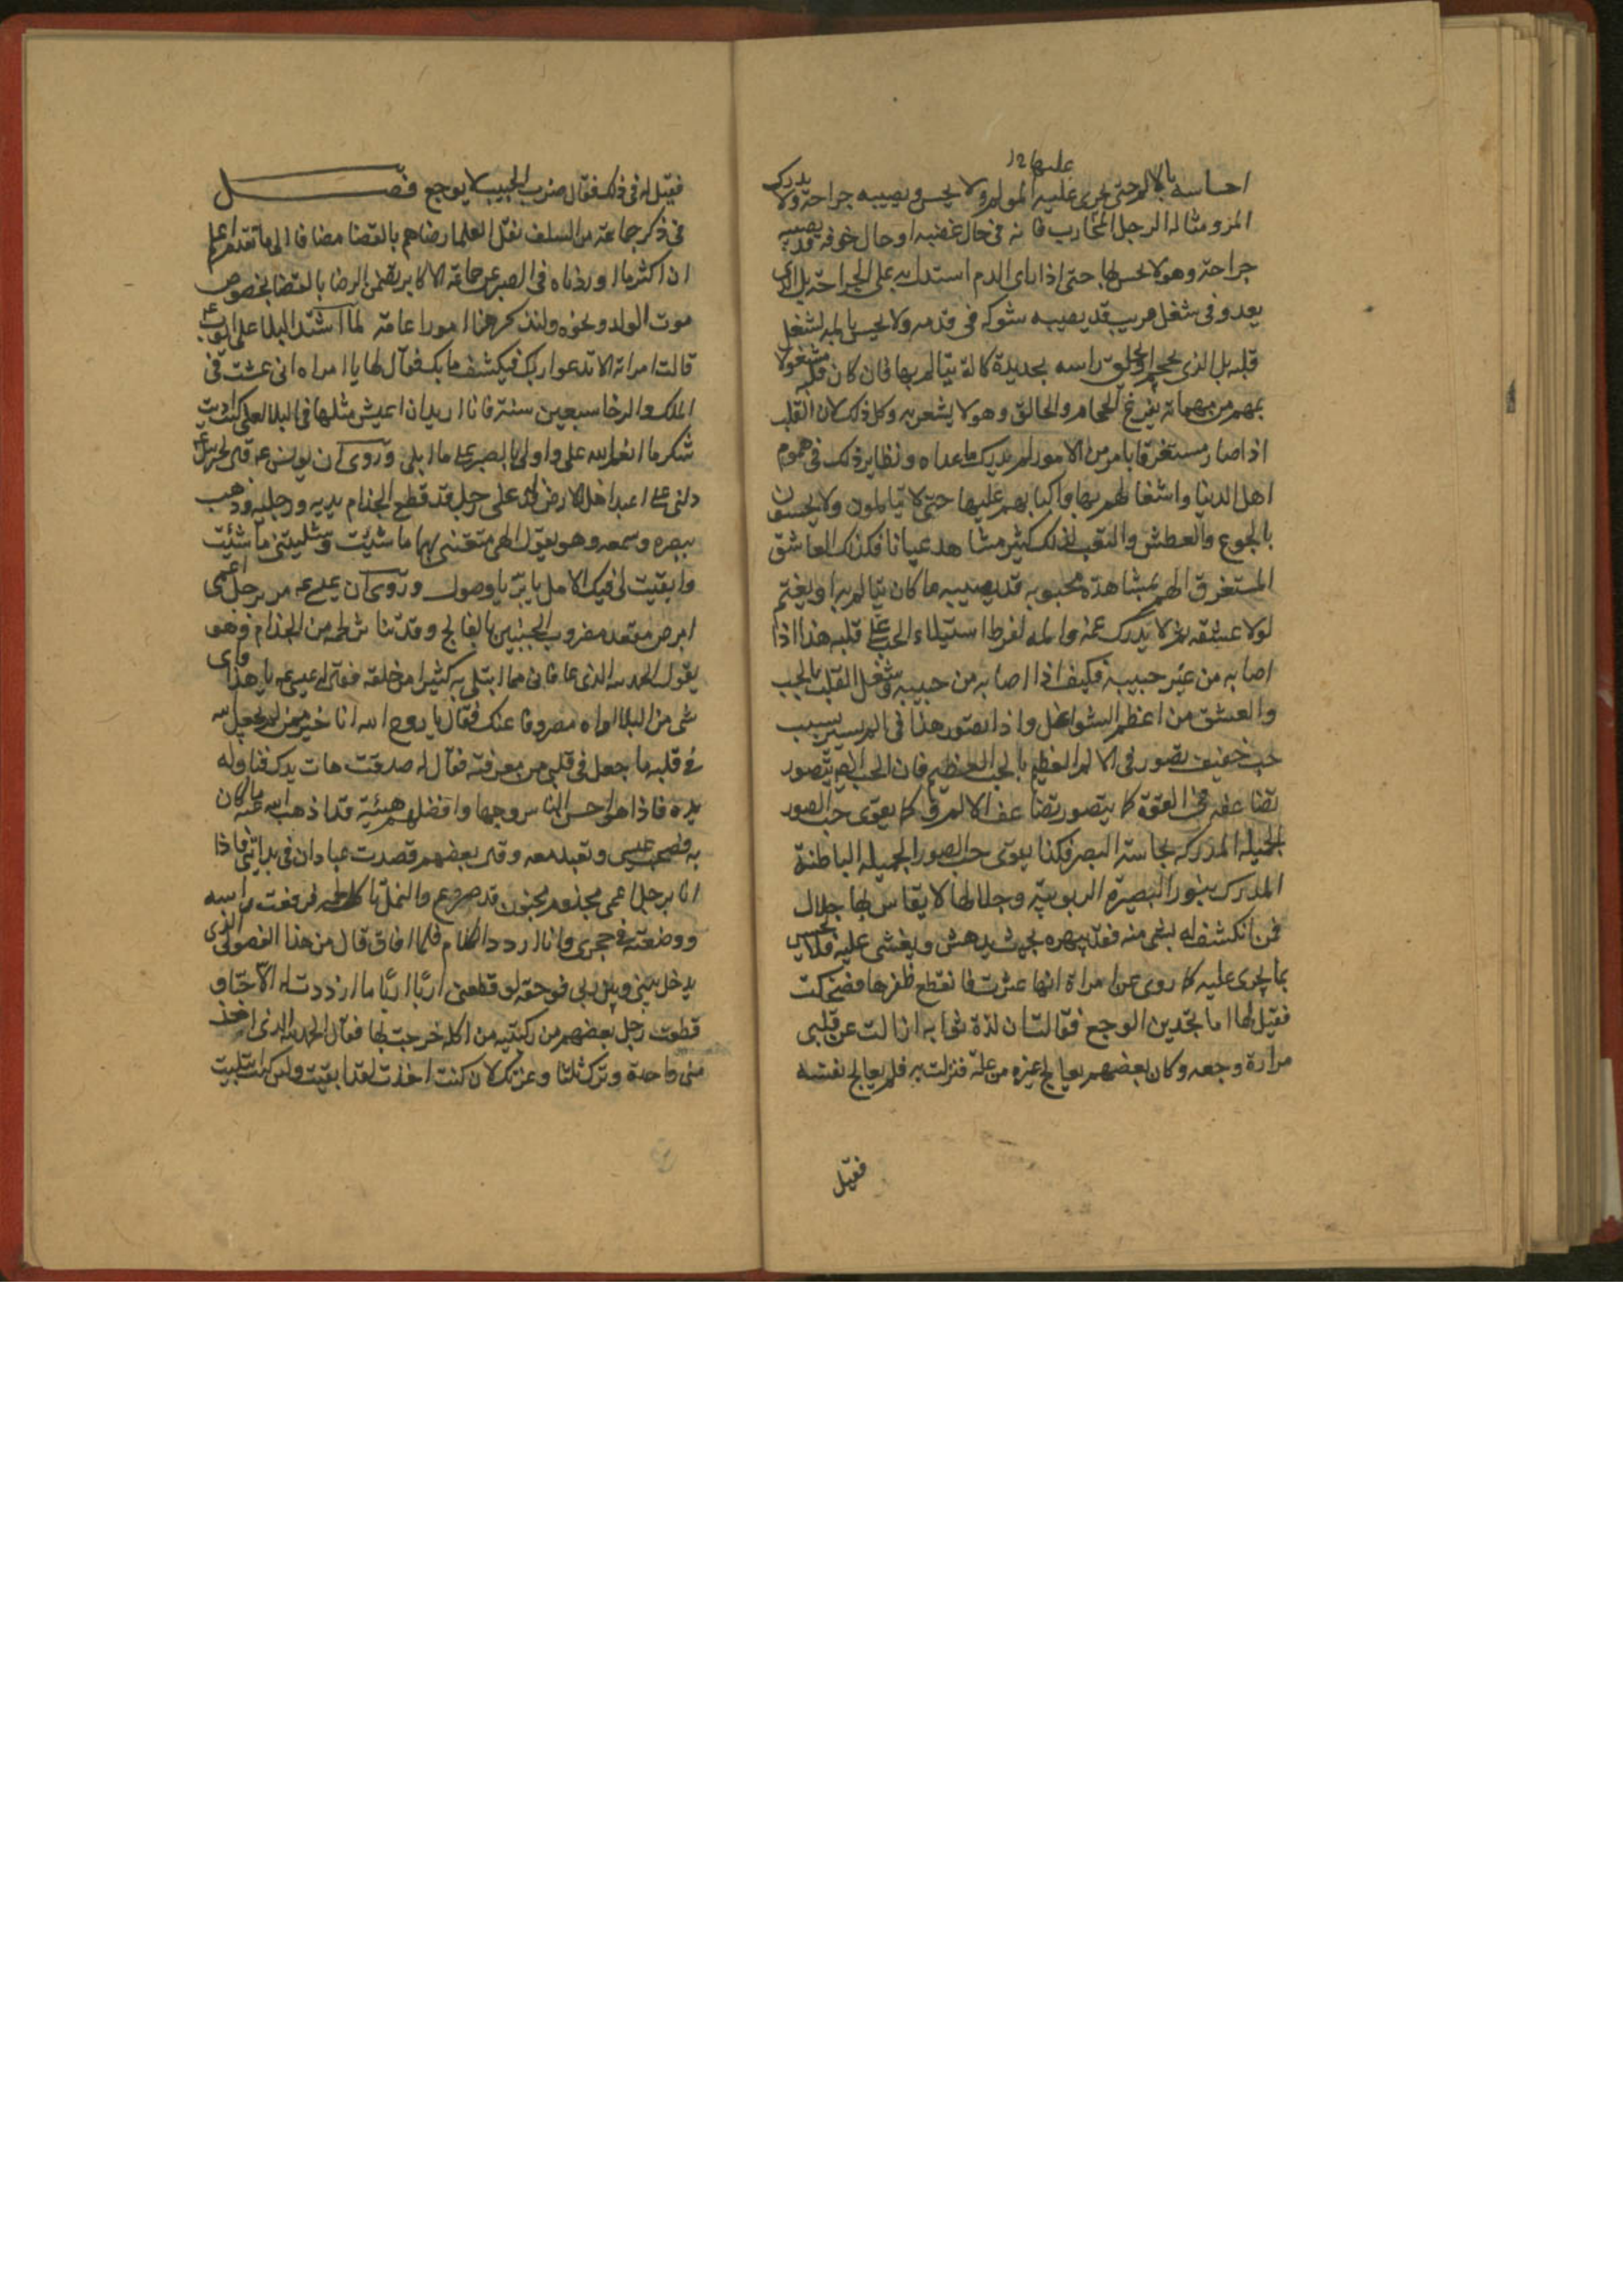 عليها ١٢
احساسه بالالم حتى يجرى عليه المولم ولا يحس ويصيبه جراحة ولا يدرك
المز ومثاله الرجل المحارب فانه فى حال غضبه او حال خوفه قد يصيبه
جراحة وهو لا يحس بها حتى اذا راى الدم استدل به على الجراحة بل الذى
يعدو فى شغل مريب قد يصيبه شوكه فى قدمه ولا يحس بالمه لشغل
قلبه بل الذى يحجم او يحلق راسه بحديدة كالة يتالم بها فان كان قلبه مشغولا
بمهم من مهماته يفرغ الحجام والحالق وهو لا يشعر به وكل ذلك لان القلب
اذا صار مستغرقا بامر من الامور لم يدرك ما عداه ونظاير ذلك فى هموم
اهل الدنيا واشغالهم بها واكبابهم عليها حتى لا يتالمون ولا يحسون
بالجوع والعطش والتعب لذلك كثير مشاهد عيانا فكذلك العاشق
المستغرق الهم بمشاهدة محبوبه قد يصيبه ما كان يتالم به او يغتم
لولا عشقه ثم لا يدرك غمه والمه لفرط استيلاء الحب على قلبه هذا اذا
اصابه من غير حبيبه فكيف اذا اصابه من حبيبه وشغل القلب بالحب
والعشق من اعظم الشواغل واذا تصور هذا فى الم يسير بسبب
حب خفيف تصور فى الالم العظيم بالحب العظيم فان الحب ايضا يتصور
تضاعفه فى القوة كما يتصور تضاعف الالم وكما يقوى حب الصور
الجميلة المدركه بحاسة البصر فكذا يقوى حب الصور الجميله الباطنة
المدرك بنور البصيرة الربوبية وجلالها لا يقاس بها جلال
فمن انكشف له بشى منه فقد يبهره بحيث يدهش ويغشى عليه فلا يحس
بما يجرى عليه كما روى عن امراة انها عثرت فانقطع ظفرها فضحكت
فقيل لها اما تجدين الوجع فقالت ان لذة ثوابه ازالت عن قلبى
مرارة وجعه وكان بعضهم يعالج غيره من علة فنزلت به فلم يعالج نفسه
فقيل
فقيل له فى ذلك فقال ضرب الحبيب لا يوجع فصل
فى ذكر جماعة من السلف نقل العلما رضاهم بالقضا مضافا الى ما تقدم اعلم
ان اكثر ما اوردناه فى الصبر عن جماعة الاكابر يتضمن الرضا بالقضا بخصوص
موت الولد ونحوه ولنذكر هنا امورا عامة لما اشتد البلا على ايوب ع
قالت امراته الا تدعو ربك فيكشف ما بك فقال لها يا امراه انى عشت فى
الملك والرخا سبعين سنة فانا اريد ان اعيش مثلها فى البلا لعلى كنت اديت
شكر ما انعم الله على واولى بالصبر على ما ابلى وروى ان يونس ع قال لجبرئيل ع
دلنى على اعبد اهل الارض فدله على رجل قد قطع الجذام يديه ورجليه وذهب
ببصره وسمعه وهو يقول الهى متعتنى بهما ما شئت وسلبتنى ما شئت
وابقيت لى فيك الامل يا بر يا وصول وروى ان عيسى ع مر برجل اعمى
ابرص مقعد مضروب الجنبين بالفالج وقد تناثر لحمه من الجذام وهو
يقول الحمد لله الذى عافانى مما ابتلى به كثيرا من خلقه فقال له عيسى ع يا هذا واى
شى من البلا اراه مصروفا عنك فقال يا روح الله انا خير ممن لم يجعل الله
فى قلبه ما جعل فى قلبى من معرفته فقال له صدقت هات يدك فناوله
يده فاذا هو احسن الناس وجها وافضلهم هيئة قد اذهب الله عنه ما كان
به فصحب عيسى وتعبد معه وقال بعضهم قصدت عبادان فى بدايتى فاذا
انا برجل اعمى مجذوم مجنون قد صرع والنمل تاكل لحمه فرفعت راسه
ووضعته فى حجرى وانا اردد الكلام فلما افاق قال من هذا الفضولى الذى
يدخل بينى وبين ربى فوحقه لو قطعنى اربا اربا ما ازددت له الا حبا و
قطعت رجل بعضهم من ركبتيه من اكلة خرجت بها فقال الحمد لله الذى اخذ
منى واحدة وترك ثلثا وعزتك لان كنت اخذت لقد ابقيت ولئن كنت ابتليت